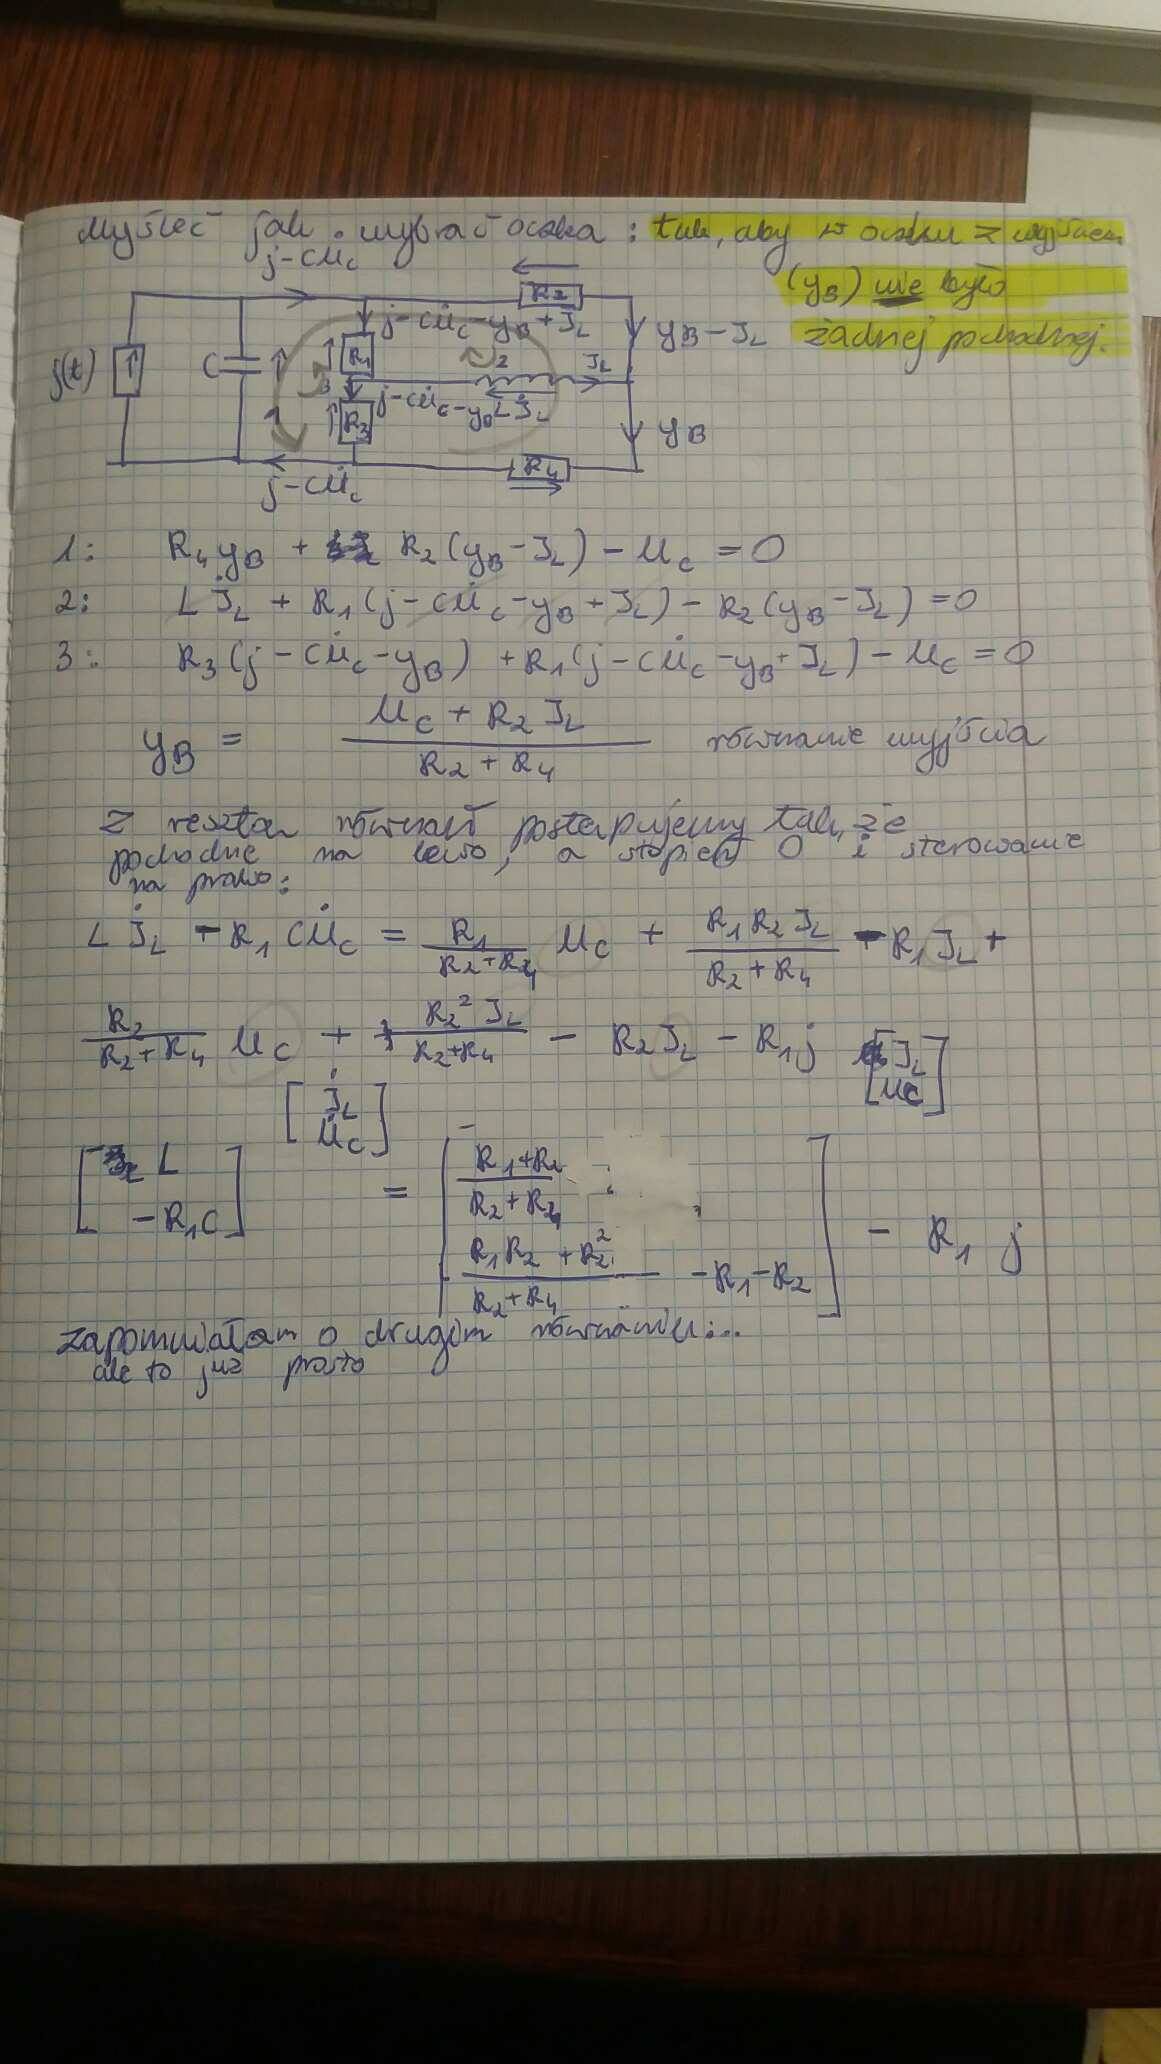 Myśleć jak wybrać oczka : tak, aby w oczku z wyjściem
(y_B) nie było
żadnej pochodnej.
j-Cu̇_C
R2
j-Cu̇_C-y_B+J_L
y_B-J_L
j(t)
C
R1
2
J_L
3
j-Cu̇_C-y_B
L J̇_L
1
R3
y_B
R4
j-Cu̇_C
1: R_4 y_B + R_2 (y_B - J_L) - u_C = 0
2: L J̇_L + R_1 (j - Cu̇_C - y_B + J_L) - R_2 (y_B - J_L) = 0
3: R_3 (j - Cu̇_C - y_B) + R_1 (j - Cu̇_C - y_B + J_L) - u_C = 0
y_B = (u_C + R_2 J_L) / (R_2 + R_4) równanie wyjścia
Z resztą równań postępujemy tak, że
pochodne na lewo, a stopień 0 i sterowanie
na prawo:
L J̇_L - R_1 Cu̇_C = R_1 / (R_2 + R_4) u_C + R_1 R_2 J_L / (R_2 + R_4) - R_1 J_L +
R_2 / (R_2 + R_4) u_C + R_2² J_L / (R_2 + R_4) - R_2 J_L - R_1 j
[J_L u_C]
[J̇_L u̇_C]
[L -R_1 C] = [(R_1 + R_2) / (R_2 + R_4) (R_1 R_2 + R_2²) / (R_2 + R_4) - R_1 - R_2] - R_1 j
zapomniałam o drugim równaniu...
ale to już proste